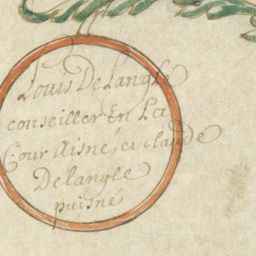 Louis Delanglé
conseiller En La
Cour Aisné, et claude
Delangle
puisné